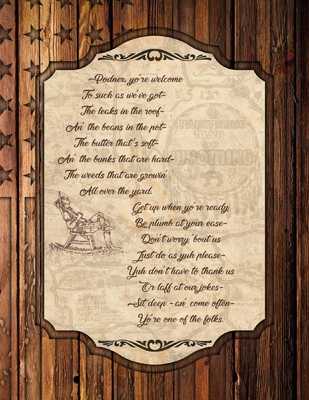 ~Podner, yo're welcome
To such as we've got~
The leaks in the roof~
An' the beans in the pot~
The butter that's soft~
An' the bunks that are hard~
The weeds that are growin'
All over the yard.
Get up when yo're ready,
Be plumb at your ease~
Don't worry 'bout us
Just do as yuh please~
Yuh don't have to thank us
'Er laff at our jokes~
~Sit deep - an' come often~
Yo're one of the folks.